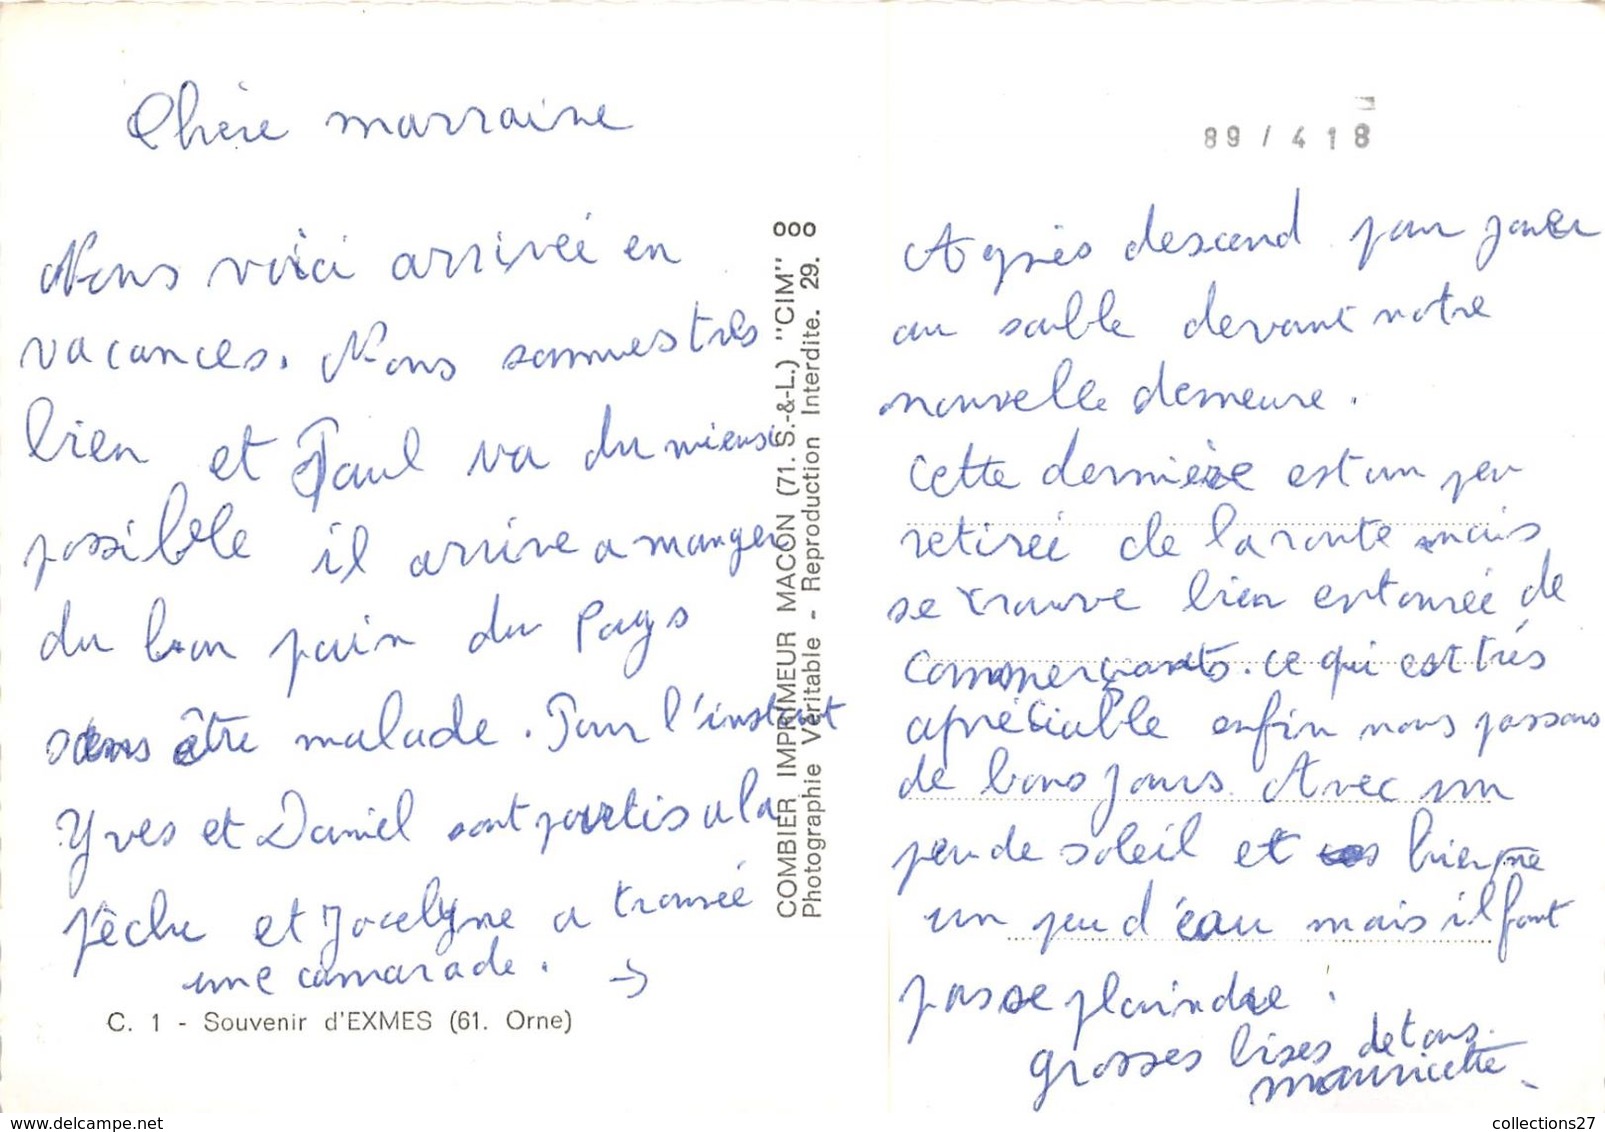 Chère marraine
Nous voici arrivéé en
vacances. Nous sommes très
bien et Paul va du mieux
possible il arrive a manger
du bon pain du Pays
sans être malade. Pour l'instant
Yves et Daniel sont partis a la
pêche et Jocelyne a trouvée
une camarade. →
C. 1 - Souvenir d'EXMES (61. Orne)
COMBIER IMPRIMEUR MACON (71. S.-&-L.) "CIM"
Photographie Véritable - Reproduction Interdite. 29.
ooo
89 / 418
Agnès descend pour jouer
au sable devant notre
nouvelle demeure.
Cette dernière est un peu
retirée de la route mais
se trouve bien entourée de
commerçants. ce qui est très
apréciable enfin nous passons
de bons jours Avec un
peu de soleil et bien
un peu d'eau mais il faut
pas se plaindre !
grosses bises de tous.
mauricette
www.delcampe.net
collections27